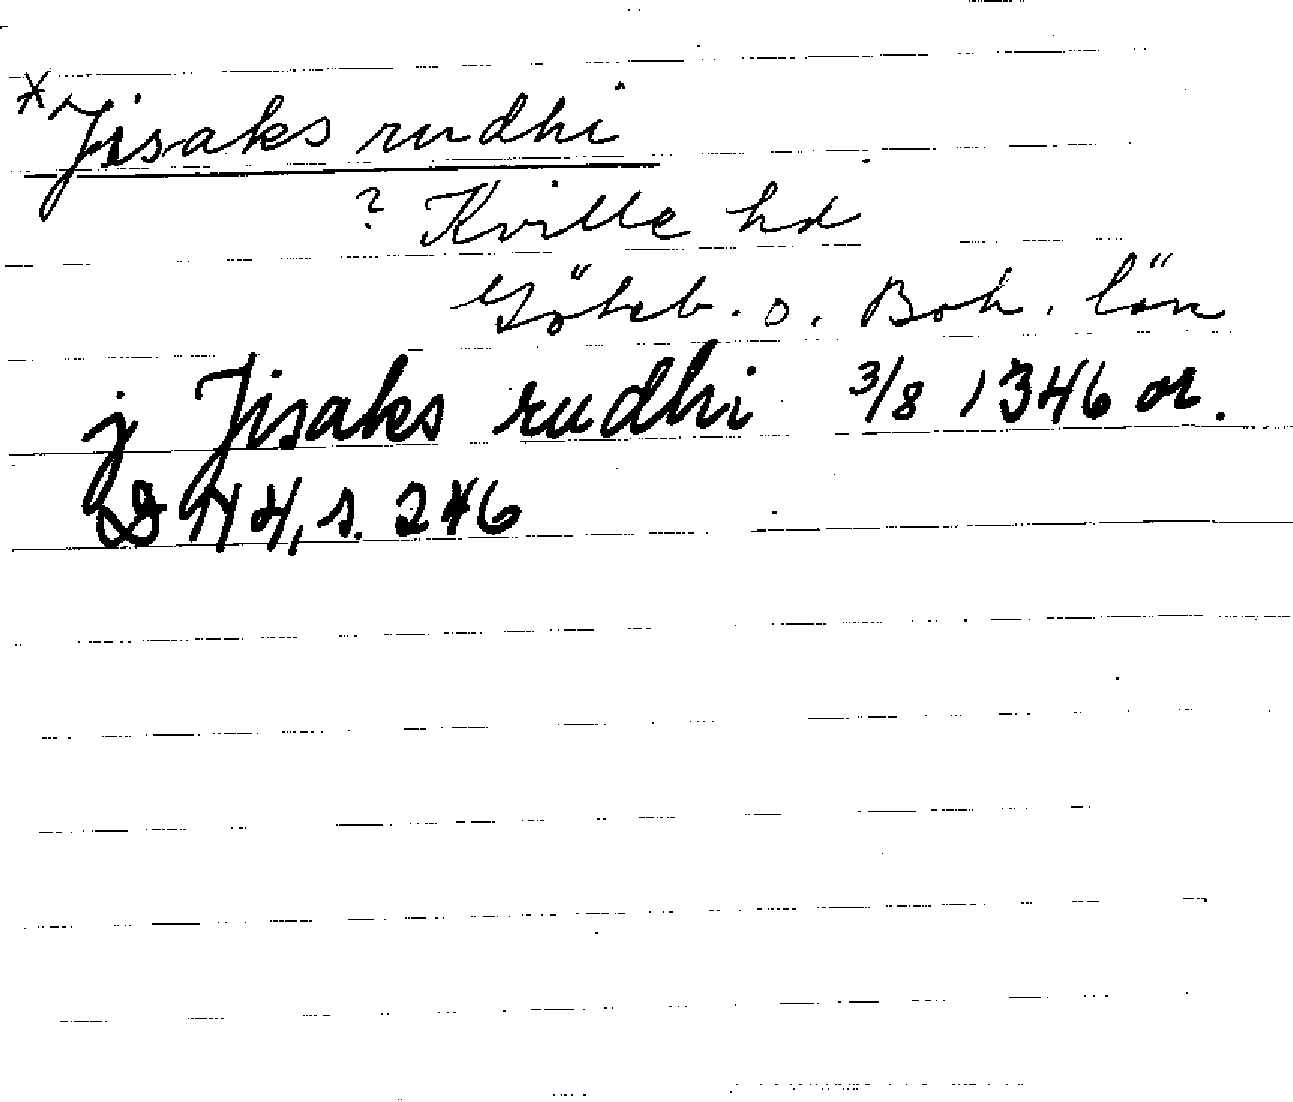 *Jisaks rudhi
? Kville hd
Göteb. o. Boh. län
j Jisaks rudhi 3/8 1346 or.
DN 4, s. 246